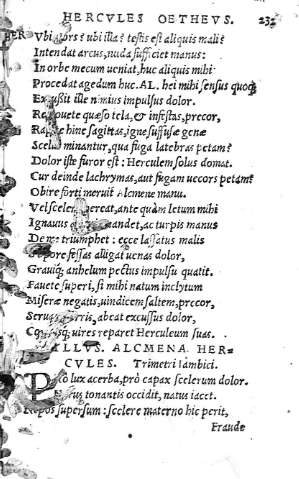 HERCVLES OETHEVS. 232
HER Vbi mors? ubi illa? testis est aliquis mali?
Intendat arcus, nuda sufficiet manus:
In orbe mecum ueniat, huc aliquis mihi
Procedat agedum huc. AL. hei mihi sensus quoq;
Excussit ille nimius impulsus dolor.
Remouete quæso tela, & infestas, precor,
Rapite hinc sagittas, igne suffusæ genæ
Scelus minantur, qua fuga latebras petam?
Dolor iste furor est: Herculem solus domat.
Cur deinde lachrymas, aut fugam uecors petam?
Obire forti meruit Alcmene manu.
Vel scelere pereat, ante quàm letum mihi
Ignauus mandet, ac turpis manus
De me triumphet: ecce lassatus malis
Sopore fessas alligat uenas dolor,
Grauiq; anhelum pectus impulsu quatit.
Fauete superi, si mihi natum inclytum
Miseræ negatis, uindicem saltem, precor,
Seruate terris, abeat excussus dolor,
uires reparet Herculeum suas.
HYLLVS. ALCMENA. HER-
CVLES. Trimetri Iambici.
PRo lux acerba, prò capax scelerum dolor.
tonantis occidit, natus iacet.
Nepos supersum: scelere materno hic perit,
Fraude